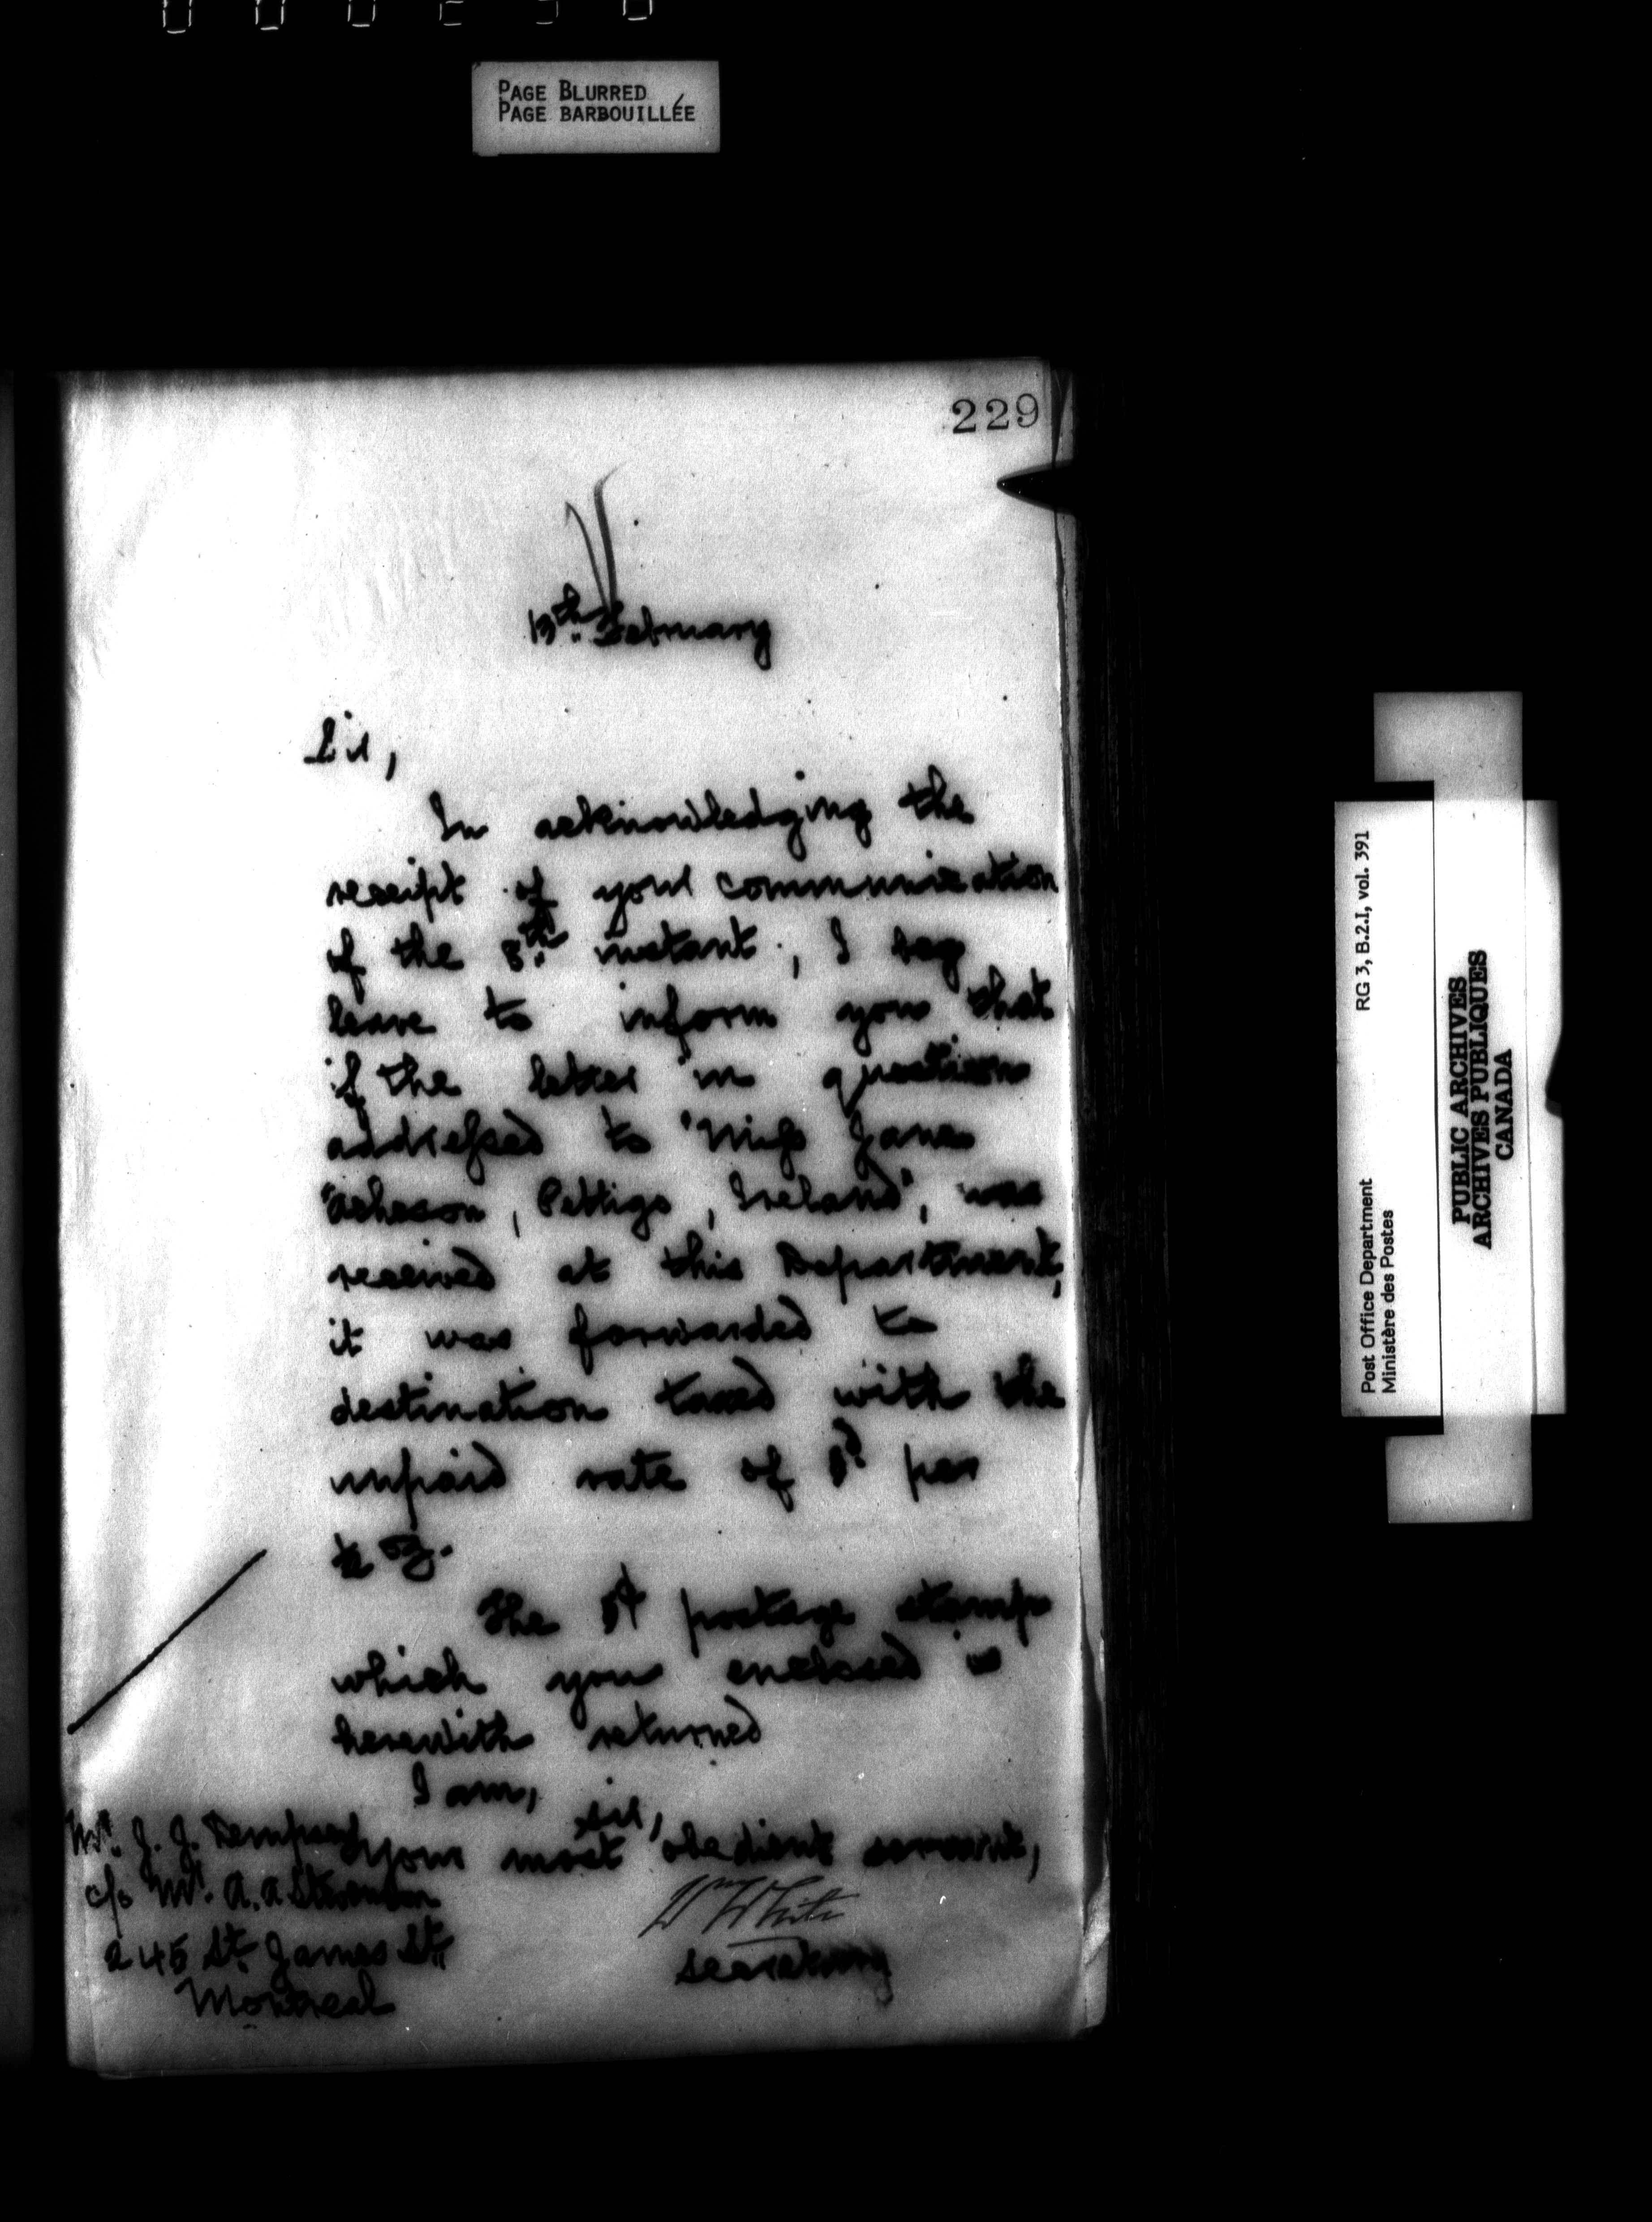 PAGE BLURRED
PAGE BARBOUILLÉE
229
13th. February
Sir,
In acknowledging the
receipt of your communication
of the 8th. instant, I beg
leave to inform you that
if the letter in question
addressed to "Miss Jane
"Acheson, Pettigo, Ireland", was
received at this Department,
it was forwarded to
destination taxed with the
unpaid rate of d. per
½ oz.
The 5¢ postage stamp
which you enclosed is
herewith returned
I am,
Sir,
your most obedient servant,
Wm White
Secretary
Mr. J. J. Dempsey
c/o Mr. A. A. Stevenson
245 St. James St.
Montreal
Post Office Department RG 3, B.2.I, vol. 391
Ministère des Postes
PUBLIC ARCHIVES
ARCHIVES PUBLIQUES
CANADA